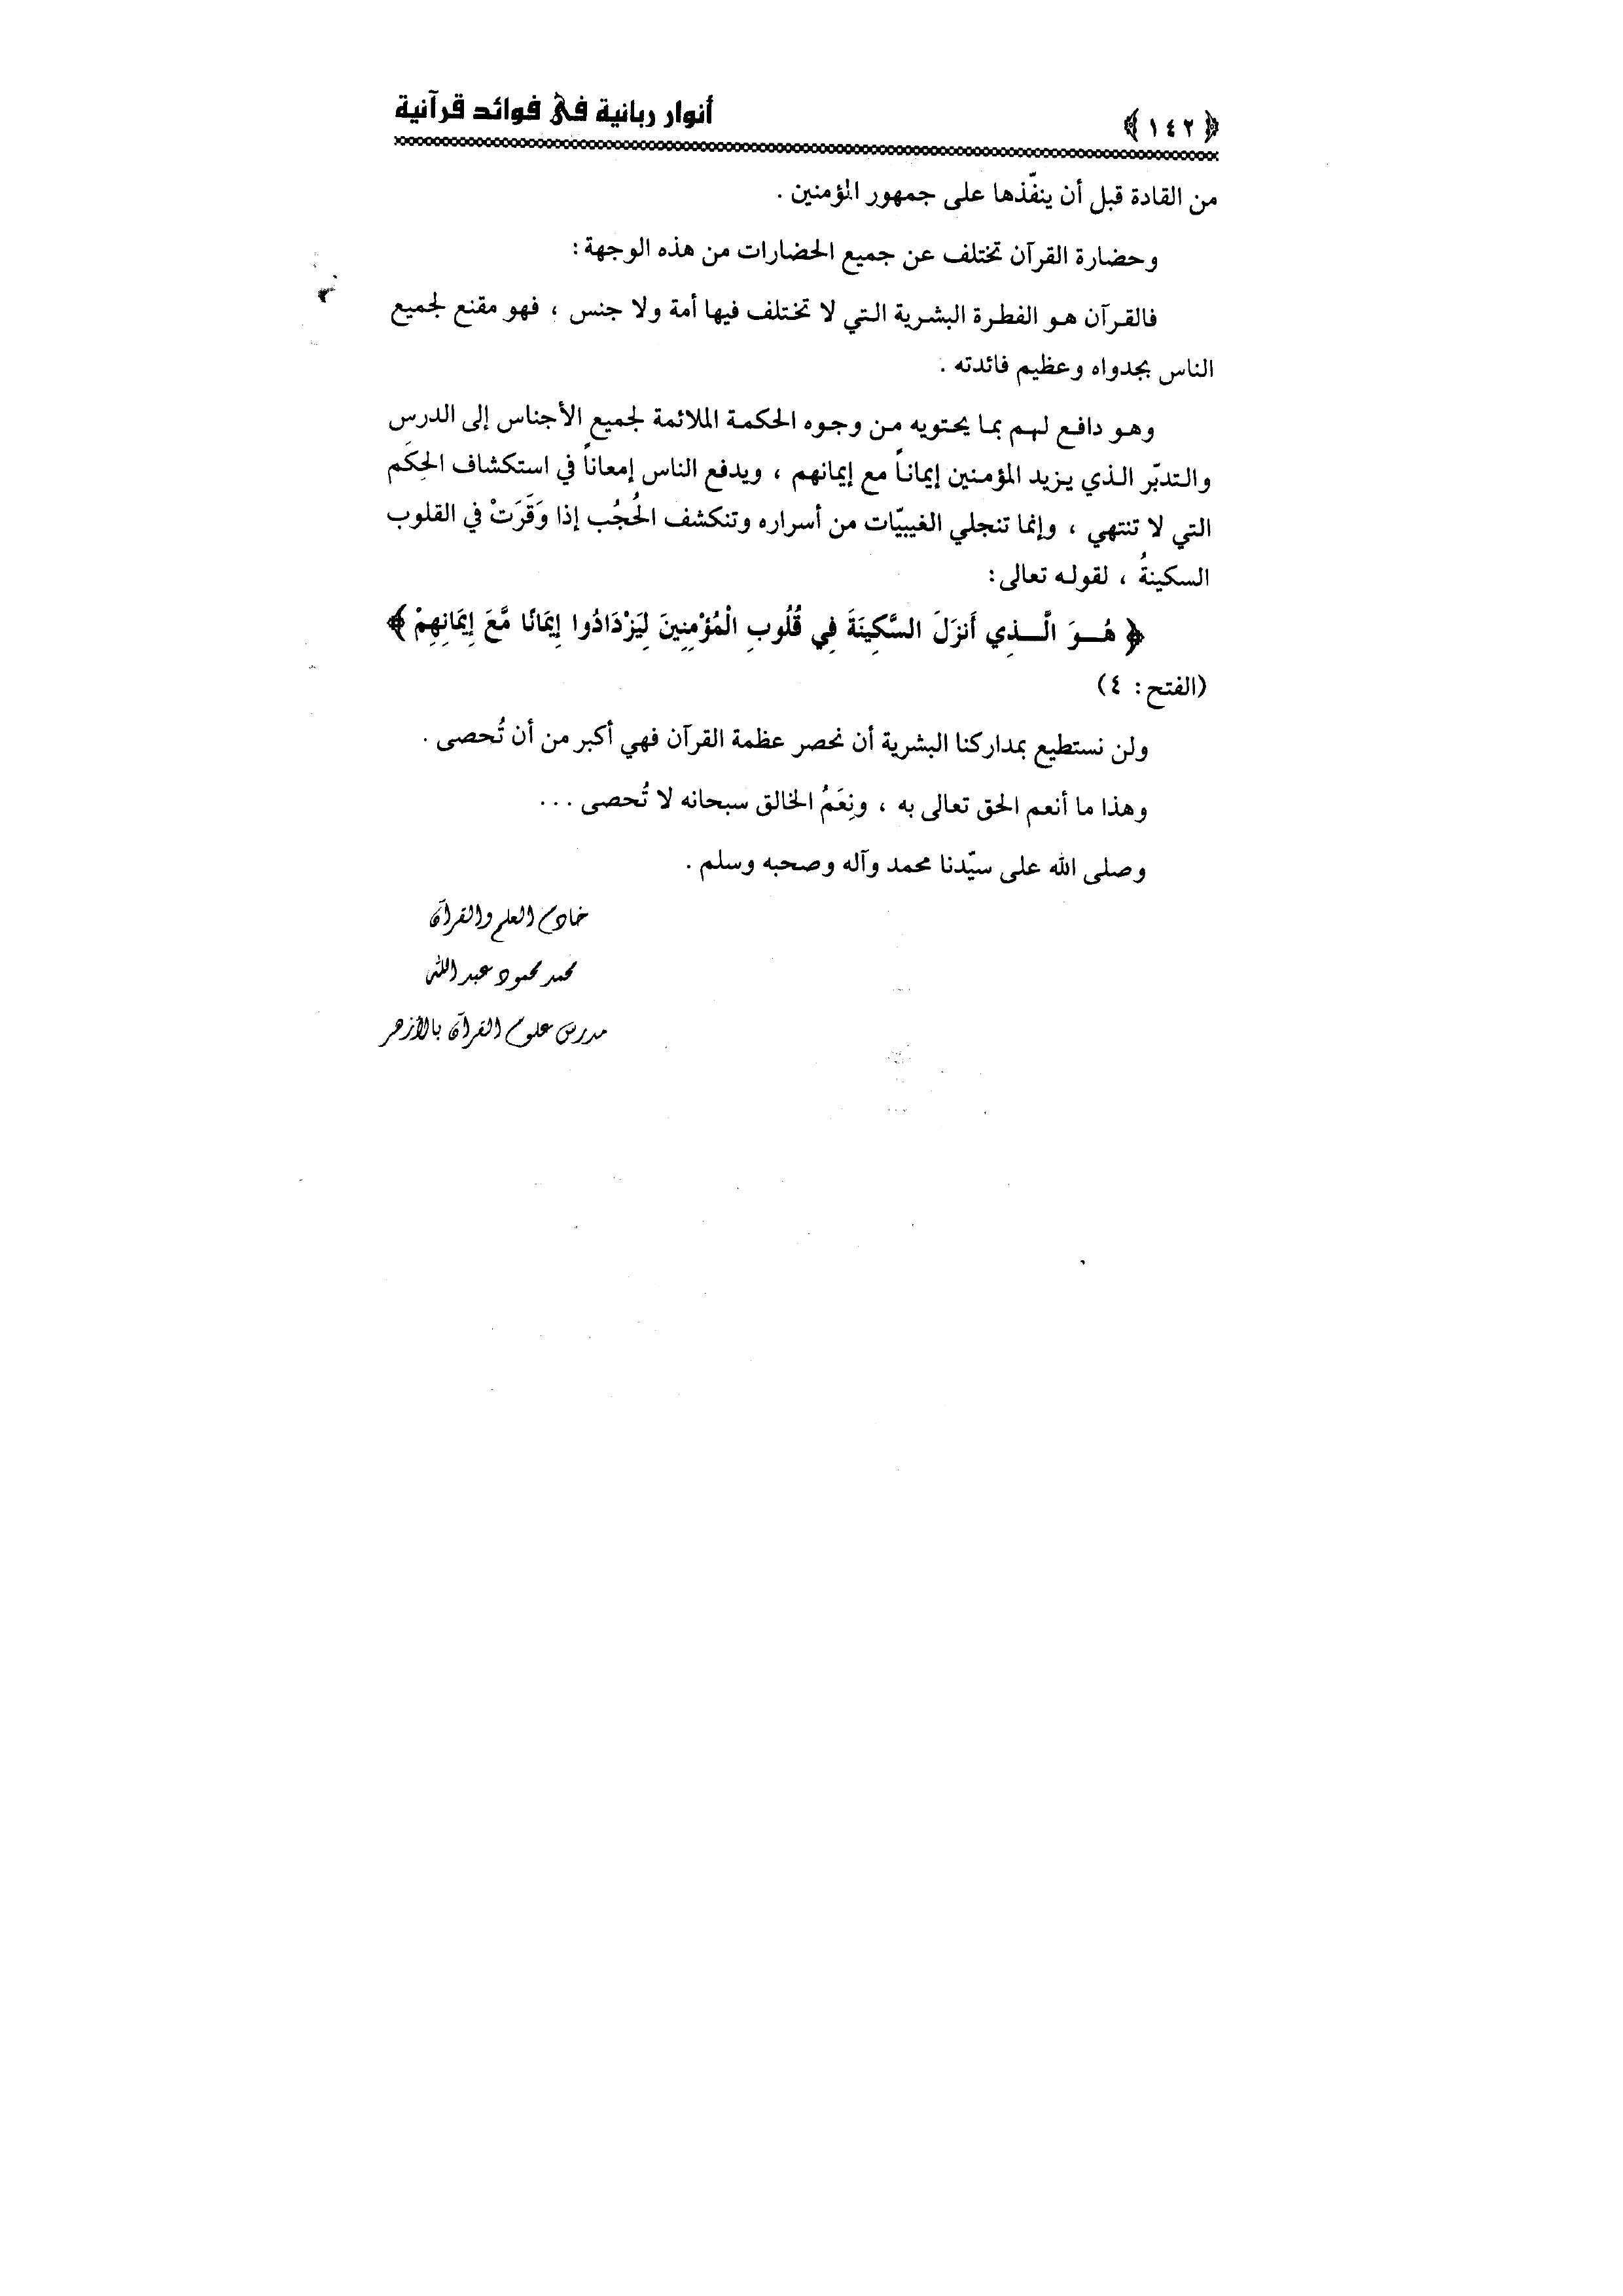 ﴿١٤٢﴾ أنوار ربانية في فوائد قرآنية
من القادة قبل أن ينفّذها على جمهور المؤمنين .
وحضارة القرآن تختلف عن جميع الحضارات من هذه الوجهة :
فالقرآن هو الفطرة البشرية التي لا تختلف فيها أمة ولا جنس ، فهو مقنع لجميع
الناس بجدواه وعظيم فائدته .
وهو دافع لهم بما يحتويه من وجوه الحكمة الملائمة لجميع الأجناس إلى الدرس
والتدبّر الذي يزيد المؤمنين إيماناً مع إيمانهم ، ويدفع الناس إمعاناً في استكشاف الحِكَم
التي لا تنتهي ، وإنما تنجلي الغيبيّات من أسراره وتنكشف الحُجُب إذا وَقَرَتْ في القلوب
السكينةُ ، لقوله تعالى :
﴿ هُــوَ الَّــذِي أَنزَلَ السَّكِينَةَ فِي قُلُوبِ الْمُؤْمِنِينَ لِيَزْدَادُوا إِيمَانًا مَّعَ إِيمَانِهِمْ ﴾
(الفتح : ٤)
ولن نستطيع بمداركنا البشرية أن نحصر عظمة القرآن فهي أكبر من أن تُحصى .
وهذا ما أنعم الحق تعالى به ، ونِعَمُ الخالق سبحانه لا تُحصى ...
وصلى الله على سيّدنا محمد وآله وصحبه وسلم .
خادم العلم والقرآن
محمد محمود عبد الله
مدرس علوم القرآن بالأزهر